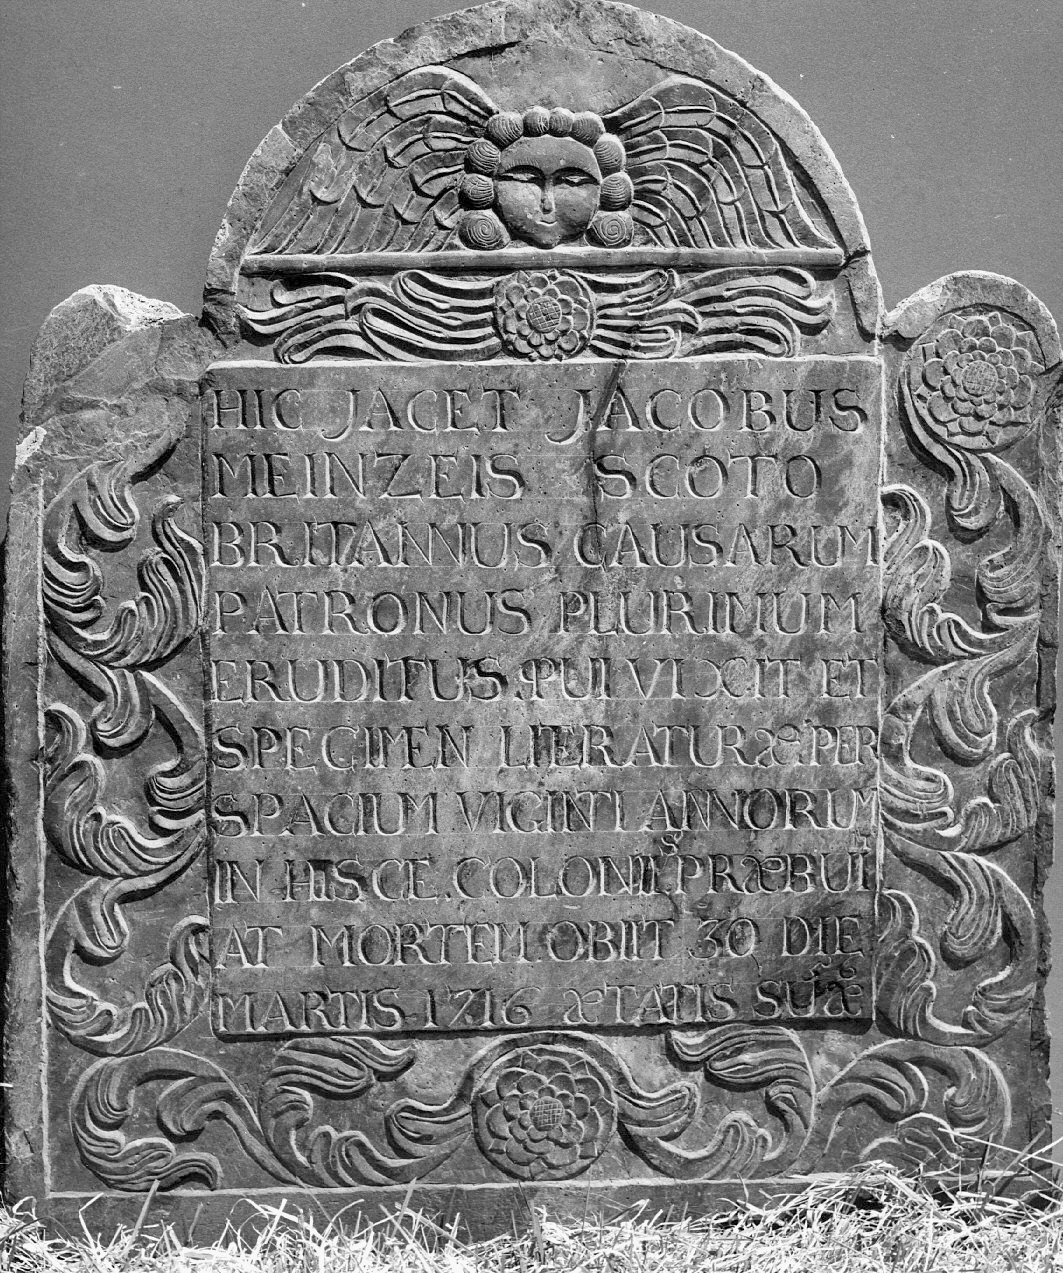 HIC JACET JACOBUS
MEINZEIS SCOTO
BRITANNUS, CAUSARUM
PATRONUS PLURIMUM
ERUDITUS, QUI VIXIT ET
SPECIMEN LIERATURÆ PER
SPACIUM VIGINTI ANNORUM
IN HISCE COLONIIS PRÆBUIT
AT MORTEM OBIIT 30 DIE
MARTIS 1716 ÆTATIS SUÆ
56